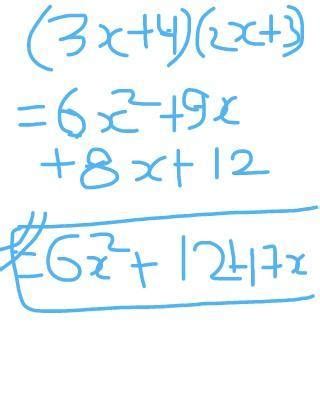 (3x+4)(2x+3)
=6x²+9x
+8x+12
=6x²+12+17x